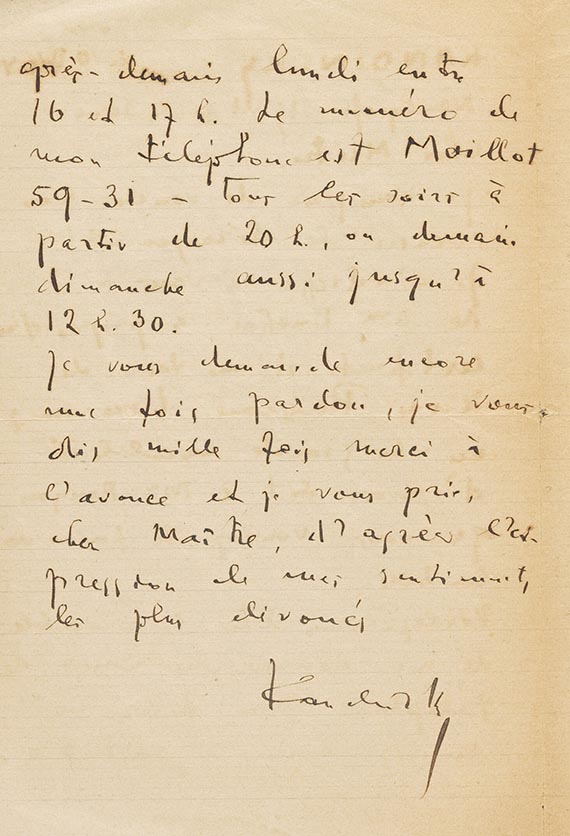 après-demain lundi entre
16 et 17 h. Le numéro de
mon téléphone est Maillot
59-31 – tous les soirs à
partir de 20 h., ou demain
dimanche aussi jusqu'à
12 h. 30.
Je vous demande encore
une fois pardon, je vous
dis mille fois merci à
l'avance et je vous prie,
cher Maître, d'agréer l'ex-
pression de mes sentiments
les plus dévoués
Kandinsky